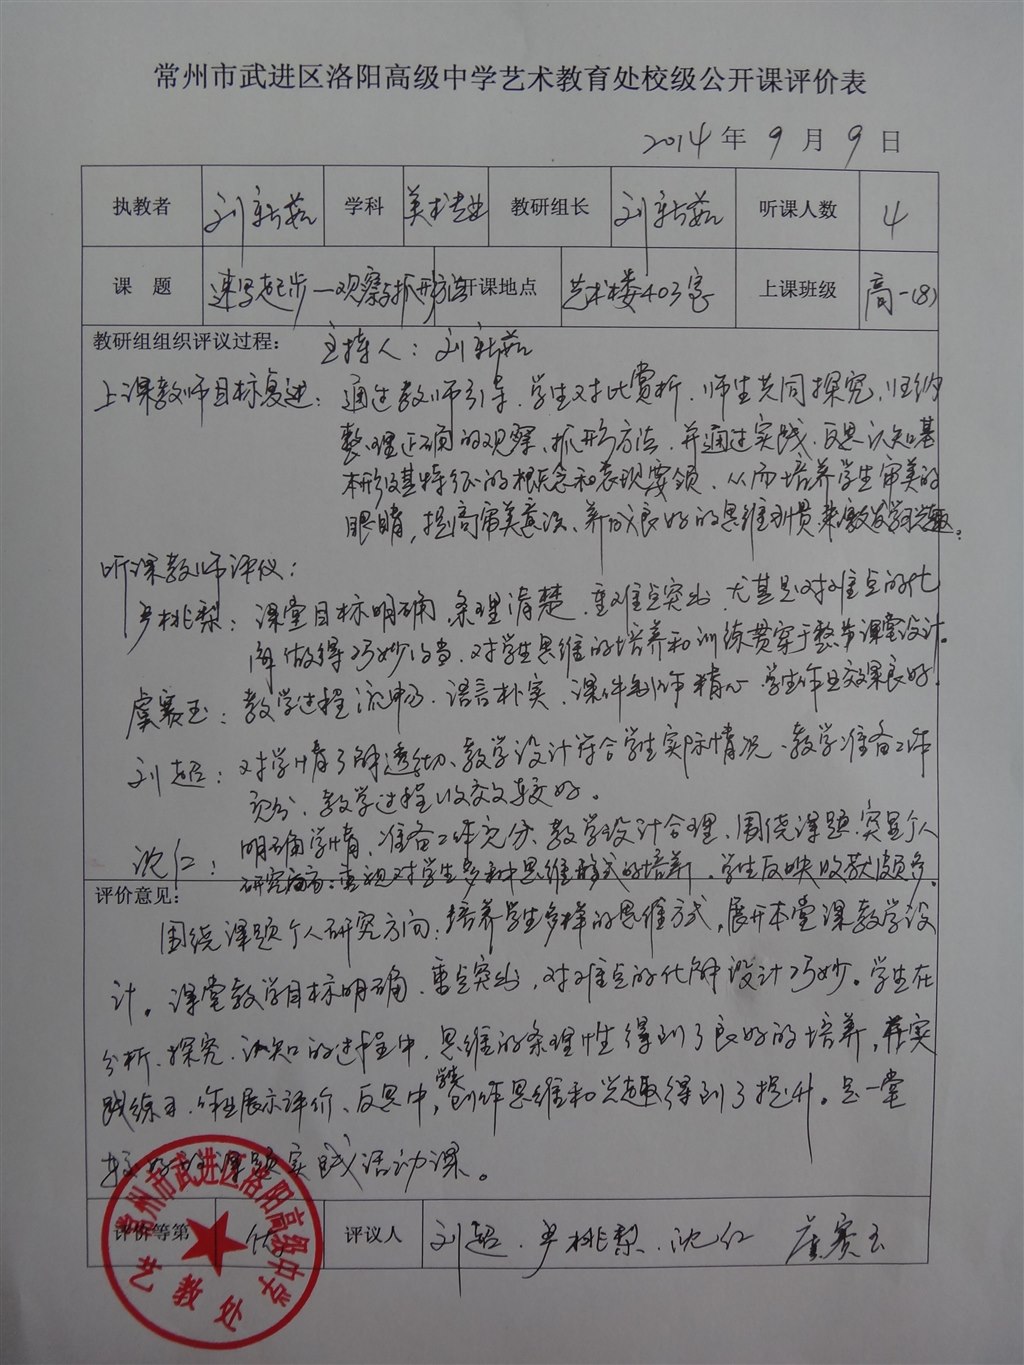 常州市武进区洛阳高级中学艺术教育处校级公开课评价表
2014 年 9 月 9 日
执教者 刘新茹 学科 美术专业 教研组长 刘新茹 听课人数 4
课 题 速写起步—观察与抓形方法 开课地点 艺术楼403室 上课班级 高一(8)
教研组组织评议过程： 主持人：刘新茹
上课教师目标复述：通过教师引导、学生对比赏析、师生共同探究、归纳
整理正确的观察、抓形方法，并通过实践、反思认知基
本形及其特征的概念和表现要领，从而培养学生审美的
眼睛，提高审美意识、养成良好的思维习惯，来激发学习兴趣。
听课教师评仪：
尹桃梨：课堂目标明确，条理清楚，重难点突出，尤其是对难点的化
解做得巧妙得当，对学生思维的培养和训练贯穿于整节课堂设计。
虞赛玉：教学过程流畅，语言朴实，课件制作精心，学生作业效果良好。
刘超：对学情了解透彻、教学设计符合学生实际情况、教学准备工作
充分，教学过程收效较好。
沈仁：明确学情，准备工作充分、教学设计合理，围绕课题，突显个人
研究方向：重视对学生多种思维形式的培养，学生反映收获颇多。
评价意见：
围绕课题个人研究方向：培养学生多样的思维方式，展开本堂课教学设
计。课堂教学目标明确，重点突出，对难点的化解设计巧妙。学生在
分析、探究、认知的过程中，思维的条理性得到了良好的培养，在实
践练习、作业展示评价、反思中，学生创作思维和兴趣得到了提升。是一堂
较好的课题实践活动课。
评价等第 优 评议人 刘超、尹桃梨、沈仁 虞赛玉
常州市武进区洛阳高级中学
艺教处